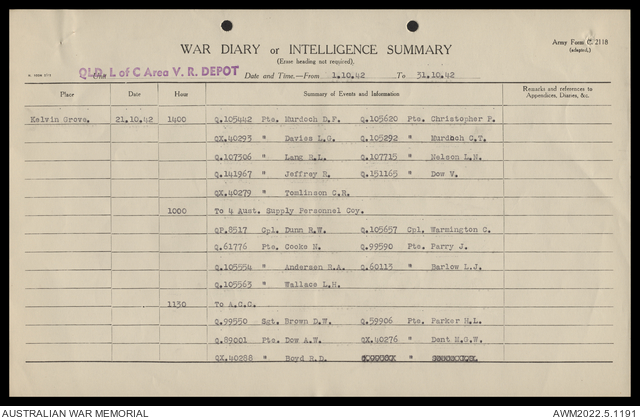 Army Form C. 2118
(adapted.)
WAR DIARY or INTELLIGENCE SUMMARY
(Erase heading not required).
Unit QLD. L of C Area V. R. DEPOT Date and Time.—From 1.10.42 To 31.10.42
Place Date Hour Summary of Events and Information Remarks and references to Appendices, Diaries, &c.
Kelvin Grove. 21.10.42 1400 Q.105442 Pte. Murdoch D.F. Q.105620 Pte. Christopher P.
QX.40293 " Davies L.G. Q.105292 " Murdoch C.T.
Q.107306 " Lang R.L. Q.107715 " Nelson L.H.
Q.141967 " Jeffrey R. Q.151165 " Dow V.
QX.40279 " Tomlinson C.R.
1000 To 4 Aust. Supply Personnel Coy.
QP.8517 Cpl. Dunn R.W. Q.105657 Cpl. Warmington C.
Q.61776 Pte. Cooke N. Q.99590 Pte. Parry J.
Q.105554 " Andersen R.A. Q.60113 " Barlow L.J.
Q.105563 " Wallace L.H.
1130 To A.C.C.
Q.99550 Sgt. Brown D.W. Q.59906 Pte. Parker H.L.
Q.89001 Pte. Dow A.W. QX.40276 " Dent M.G.W.
QX.40288 " Boyd R.D.
AUSTRALIAN WAR MEMORIAL AWM2022.5.1191